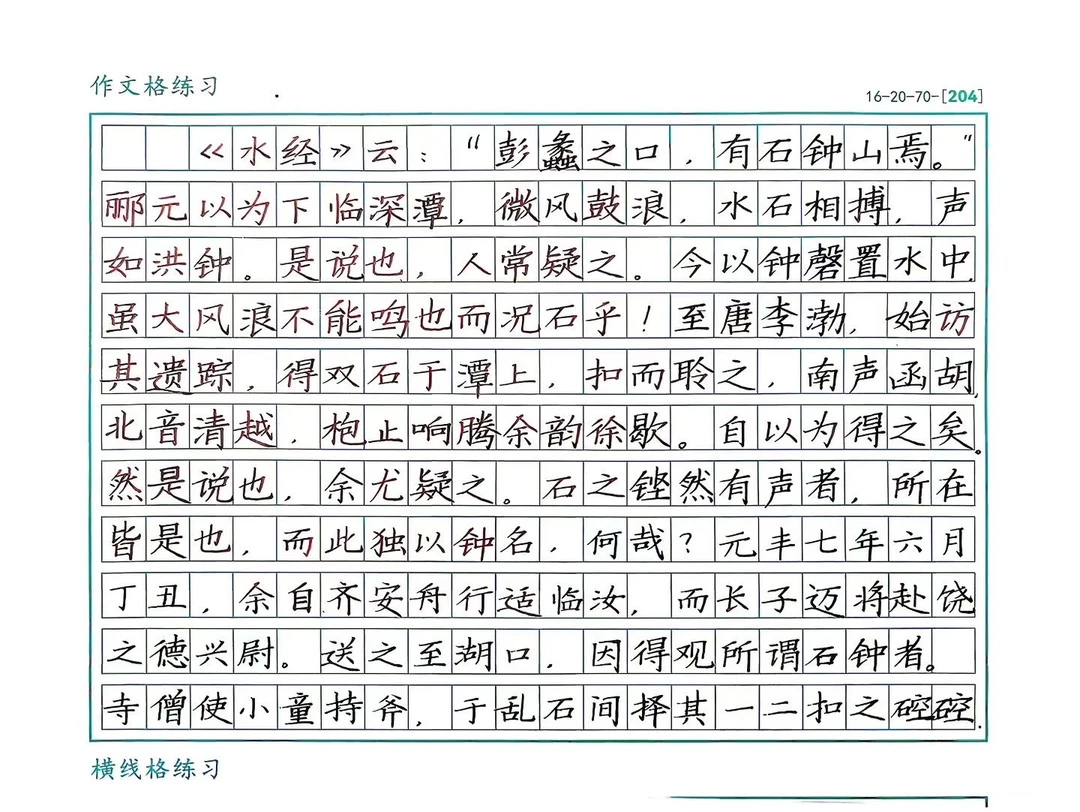 作文格练习
16-20-70-[204]
《水经》云：“彭蠡之口，有石钟山焉。”
郦元以为下临深潭，微风鼓浪，水石相搏，声
如洪钟。是说也，人常疑之。今以钟磬置水中，
虽大风浪不能鸣也而况石乎！至唐李渤，始访
其遗踪，得双石于潭上，扣而聆之，南声函胡，
北音清越，枹止响腾余韵徐歇。自以为得之矣。
然是说也，余尤疑之。石之铿然有声者，所在
皆是也，而此独以钟名，何哉？元丰七年六月
丁丑，余自齐安舟行适临汝，而长子迈将赴饶
之德兴尉。送之至湖口，因得观所谓石钟者。
寺僧使小童持斧，于乱石间择其一二扣之硿硿.
横线格练习